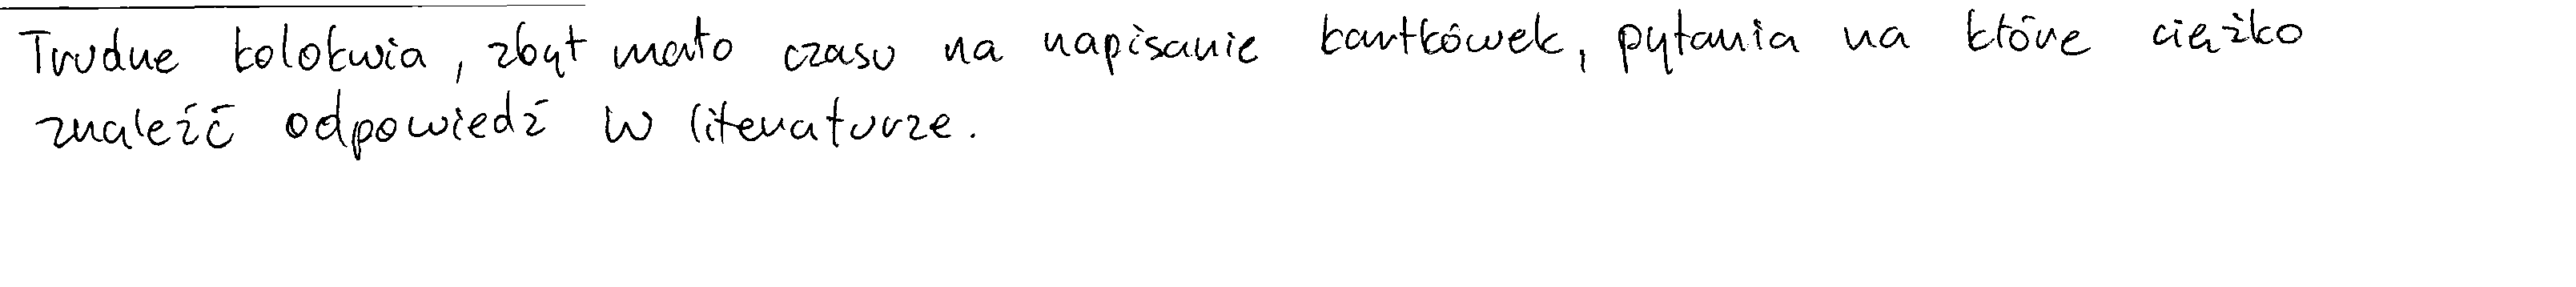 Trudne kolokwia, zbyt mało czasu na napisanie kartkówek, pytania na które ciężko
znaleźć odpowiedź w literaturze.